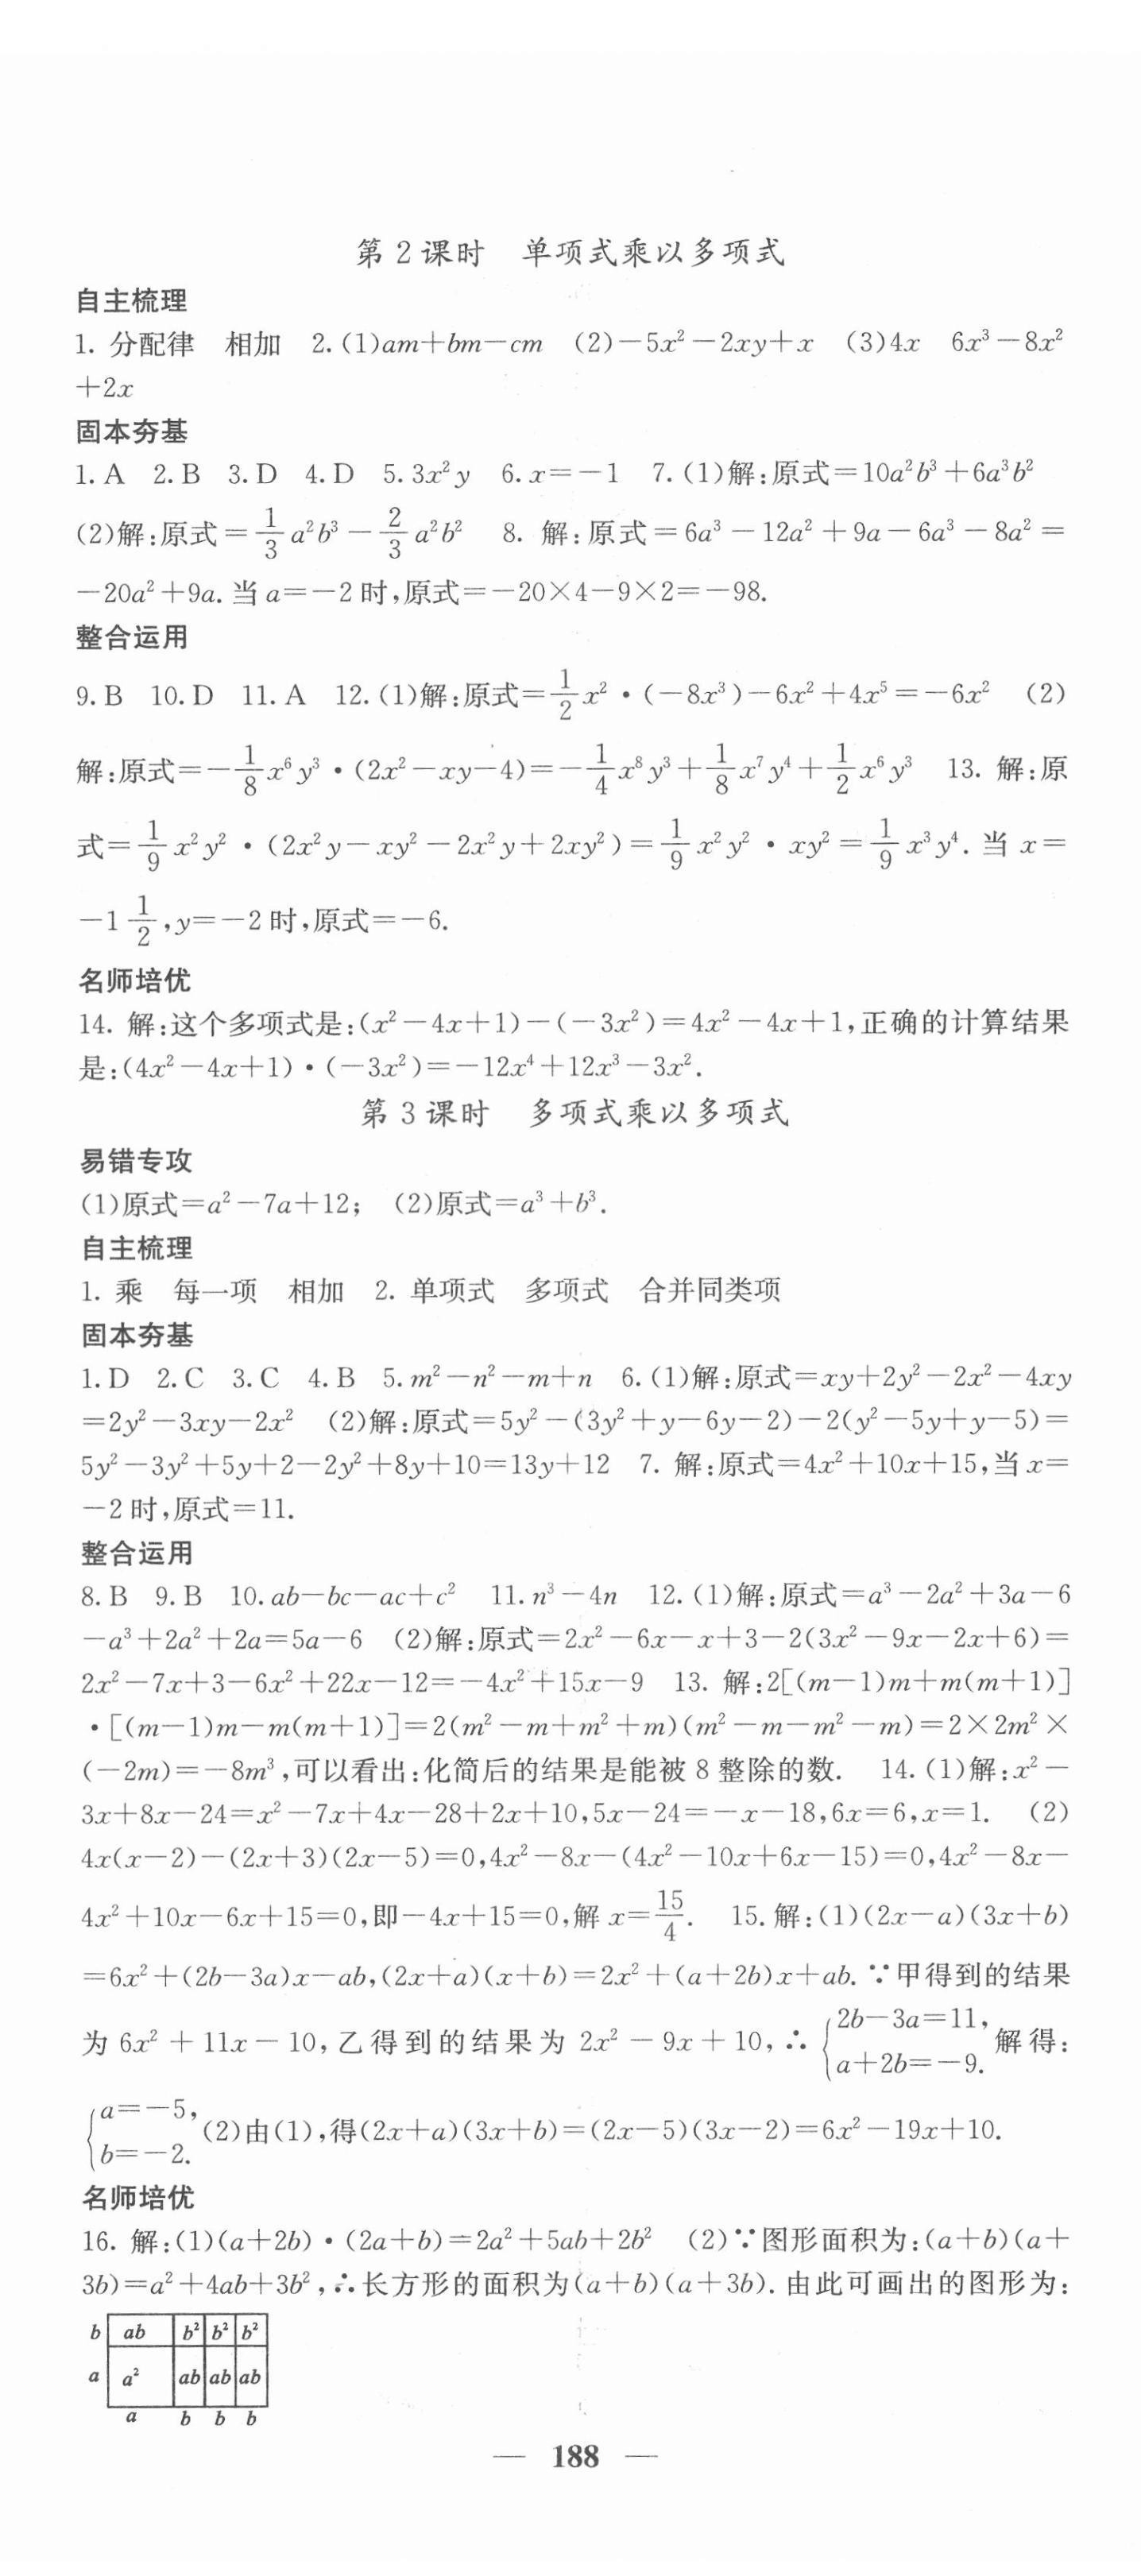 第2课时　单项式乘以多项式
自主梳理
1. 分配律　相加　2.(1)am+bm-cm　(2)-5x²-2xy+x　(3)4x　6x³-8x²
+2x
固本夯基
1.A　2.B　3.D　4.D　5.3x²y　6.x=-1　7.(1)解:原式=10a²b³+6a³b²
(2)解:原式=1/3 a²b³-2/3 a²b²　8. 解:原式=6a³-12a²+9a-6a³-8a²=
-20a²+9a.当a=-2时,原式=-20×4-9×2=-98.
整合运用
9.B　10.D　11.A　12.(1)解:原式=1/2 x²·(-8x³)-6x²+4x⁵=-6x²　(2)
解:原式=-1/8 x⁶y³·(2x²-xy-4)=-1/4 x⁸y³+1/8 x⁷y⁴+1/2 x⁶y³　13. 解:原
式=1/9 x²y²·(2x²y-xy²-2x²y+2xy²)=1/9 x²y²·xy²=1/9 x³y⁴.当x=
-1 1/2,y=-2时,原式=-6.
名师培优
14. 解:这个多项式是:(x²-4x+1)-(-3x²)=4x²-4x+1,正确的计算结果
是:(4x²-4x+1)·(-3x²)=-12x⁴+12x³-3x².
第3课时　多项式乘以多项式
易错专攻
(1)原式=a²-7a+12;　(2)原式=a³+b³.
自主梳理
1. 乘　每一项　相加　2. 单项式　多项式　合并同类项
固本夯基
1.D　2.C　3.C　4.B　5.m²-n²-m+n　6.(1)解:原式=xy+2y²-2x²-4xy
=2y²-3xy-2x²　(2)解:原式=5y²-(3y²+y-6y-2)-2(y²-5y+y-5)=
5y²-3y²+5y+2-2y²+8y+10=13y+12　7. 解:原式=4x²+10x+15,当x=
-2时,原式=11.
整合运用
8.B　9.B　10.ab-bc-ac+c²　11.n³-4n　12.(1)解:原式=a³-2a²+3a-6
-a³+2a²+2a=5a-6　(2)解:原式=2x²-6x-x+3-2(3x²-9x-2x+6)=
2x²-7x+3-6x²+22x-12=-4x²+15x-9　13. 解:2[(m-1)m+m(m+1)]
·[(m-1)m-m(m+1)]=2(m²-m+m²+m)(m²-m-m²-m)=2×2m²×
(-2m)=-8m³,可以看出:化简后的结果是能被8整除的数.　14.(1)解:x²-
3x+8x-24=x²-7x+4x-28+2x+10,5x-24=-x-18,6x=6,x=1.　(2)
4x(x-2)-(2x+3)(2x-5)=0,4x²-8x-(4x²-10x+6x-15)=0,4x²-8x-
4x²+10x-6x+15=0,即-4x+15=0,解x=15/4.　15.解:(1)(2x-a)(3x+b)
=6x²+(2b-3a)x-ab,(2x+a)(x+b)=2x²+(a+2b)x+ab.∵甲得到的结果
为6x²+11x-10,乙得到的结果为2x²-9x+10,∴{2b-3a=11, a+2b=-9. 解得:
{a=-5, b=-2. (2)由(1),得(2x+a)(3x+b)=(2x-5)(3x-2)=6x²-19x+10.
名师培优
16. 解:(1)(a+2b)·(2a+b)=2a²+5ab+2b²　(2)∵图形面积为:(a+b)(a+
3b)=a²+4ab+3b²,∴长方形的面积为(a+b)(a+3b).由此可画出的图形为:
b ab b² b² b²
a a² ab ab ab
a b b b
— 188 —